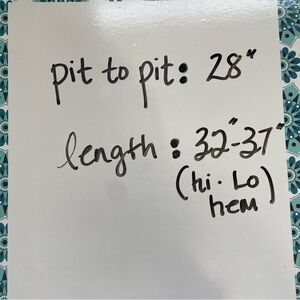 pit to pit: 28"
length: 32"-37"
(hi·Lo)
hem